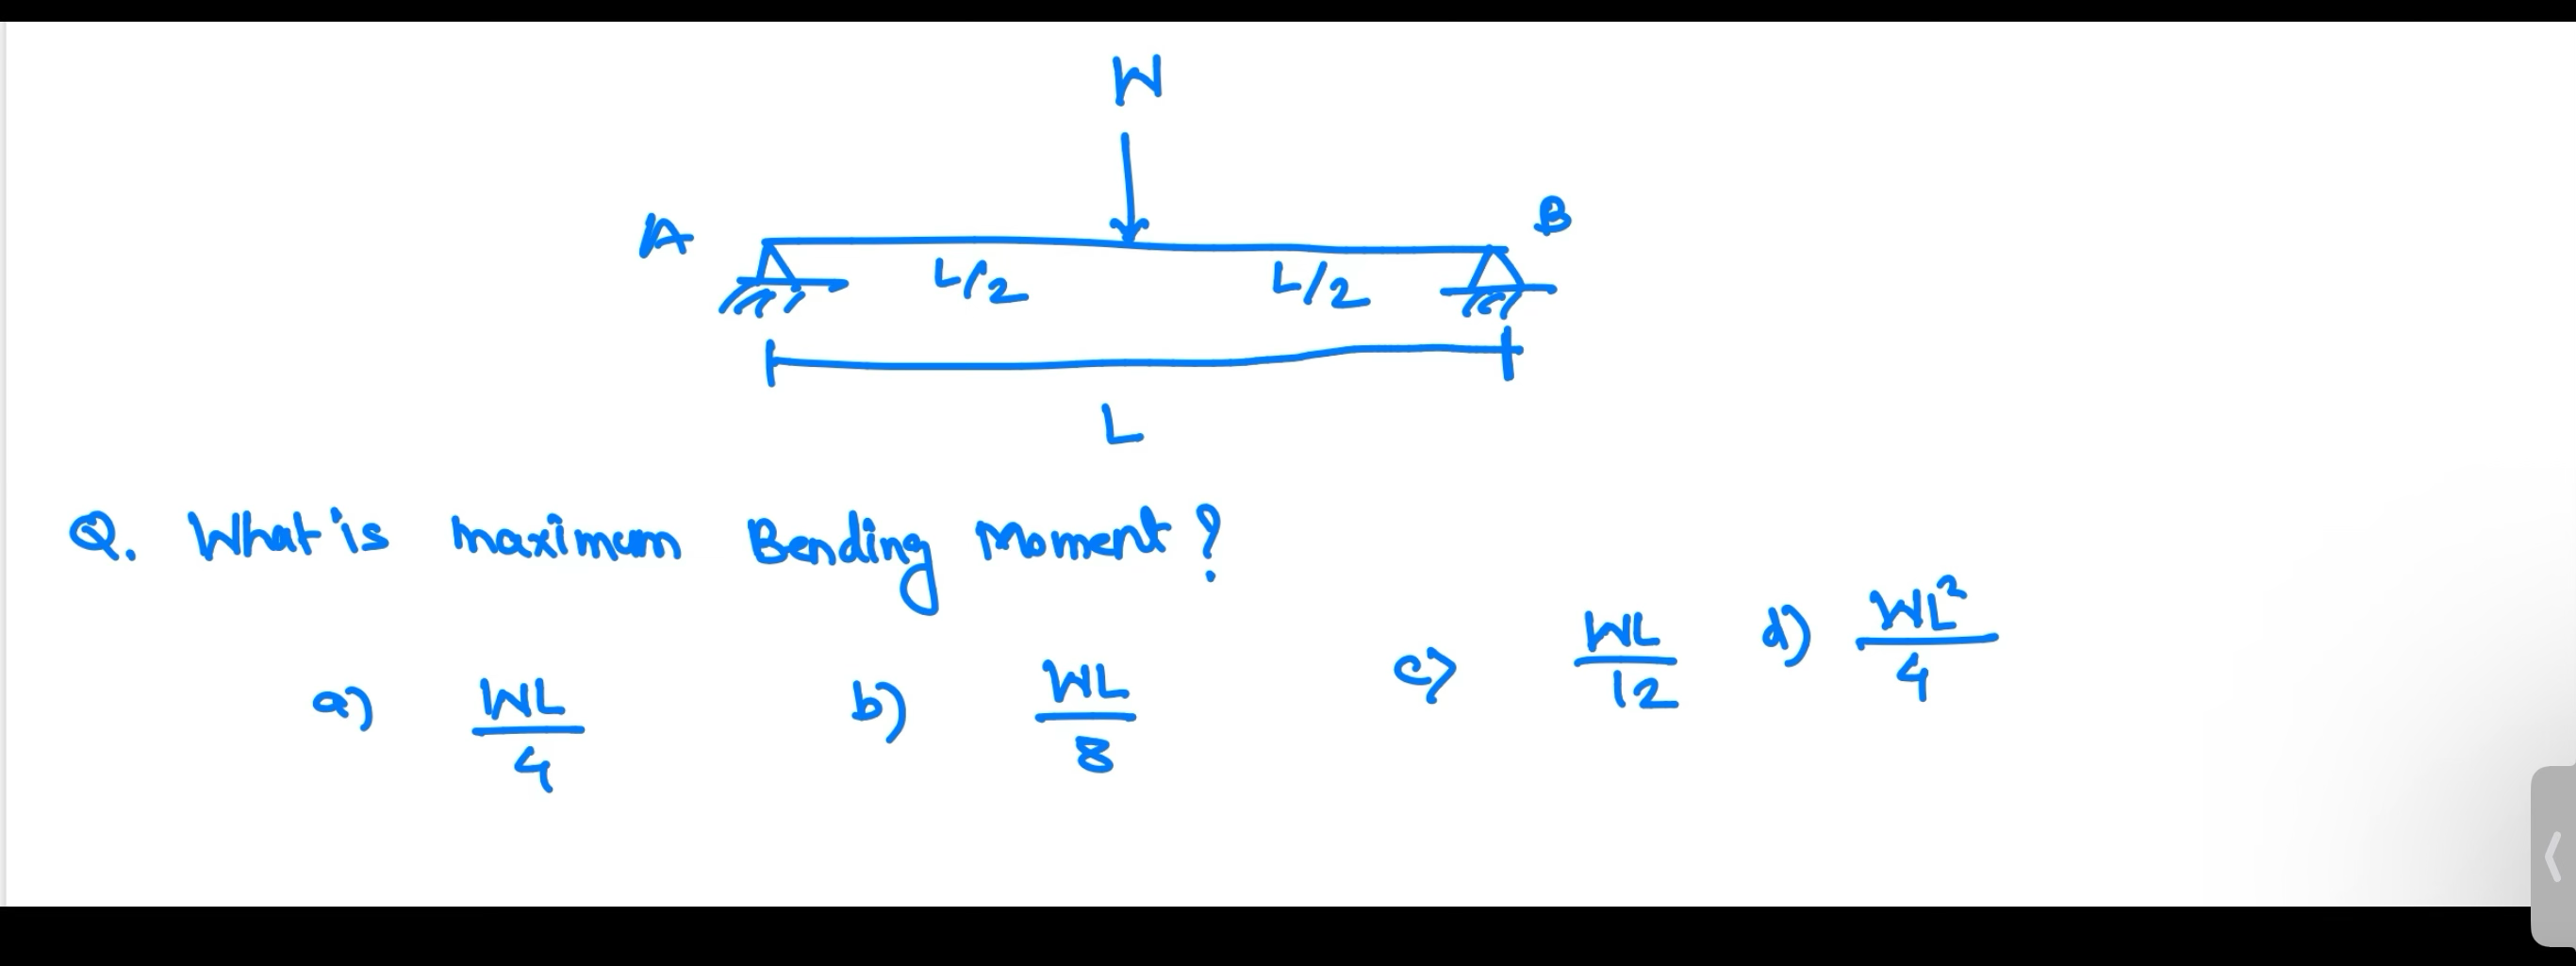 W
A
B
L/2 L/2
L
Q. What is maximum Bending Moment?
a) WL/4 b) WL/8 c) WL/12 d) WL²/4